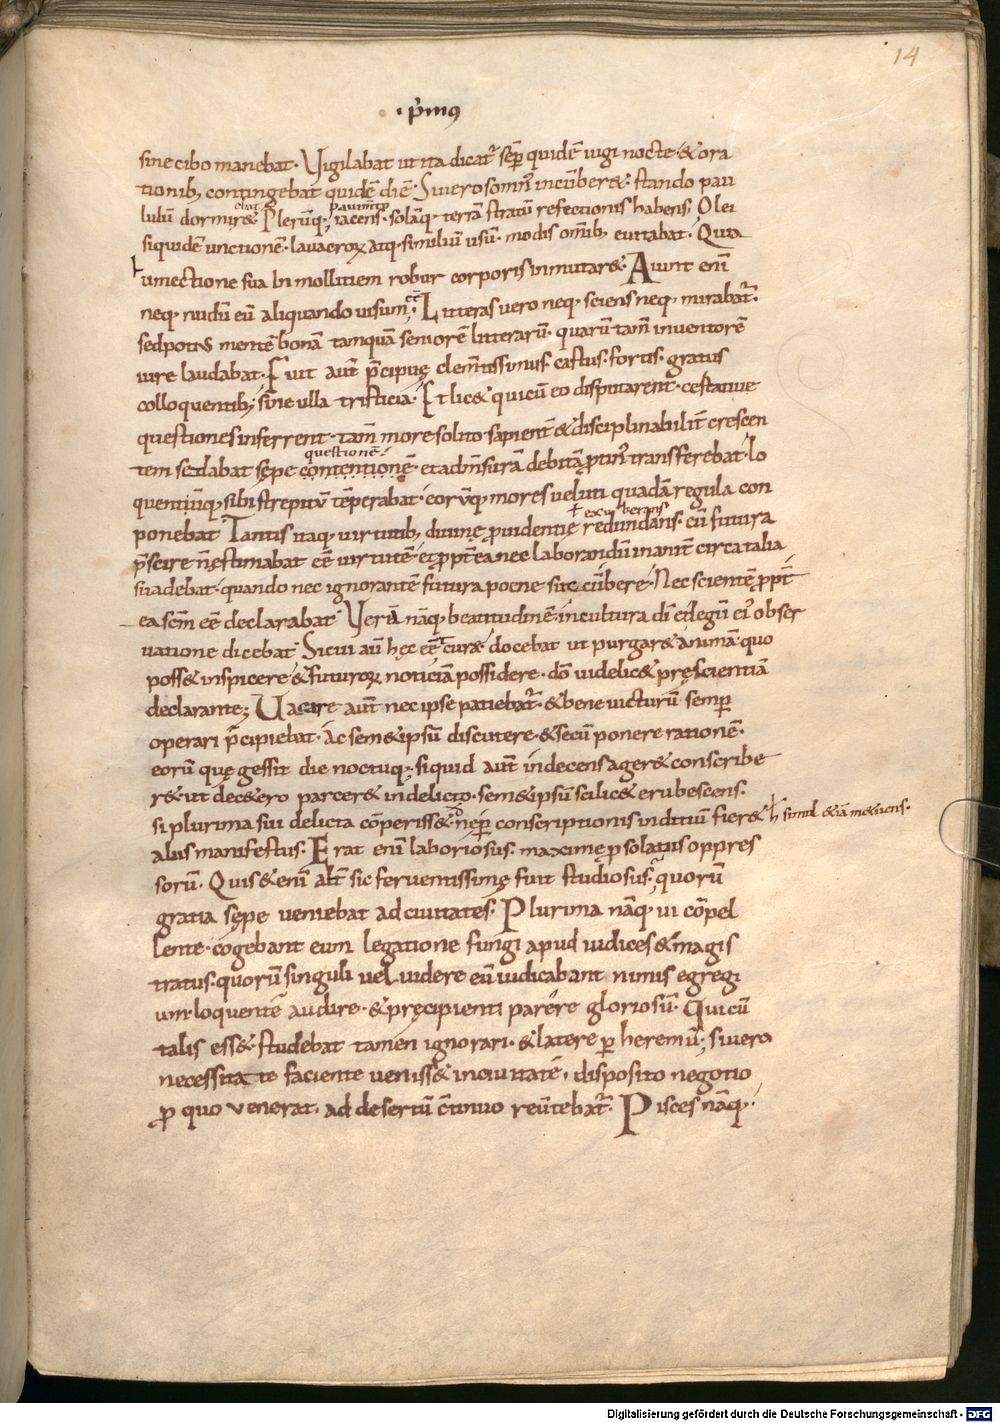 14
· p̄mꝰ
sine cibo manebat. Vigilabat ut ita dicat᷑ sēp quidē iugi nocte & ora
tionib; contingebat quidē diē. Si uero somn᷑ incūber&. stando pau
lulū dormir&. Plerūq; iacens. solāq; terrā stratū refectionis habens. Olei
pauimto
siquidē unctionē. lauacroꝝ atq; similiū usū. modis omīb; euitabat. Quia
umectione sua in mollitiem robur corporis inmutar&. Aiunt enī
neq; nudū eū aliquando uisum ēē. Litteras uero neq; sciens neq; mirabat᷑.
sed potius mentē bonā tamquā seniorē litterarū. quarū tam̄ inuentorē
iure laudabat. Fuit aut̄ p̄cipuę clem̄tissimus. castus. fortis. gratus
colloquentib; sine ulla tristicia. Et lic& qui cū eo disputarent. certatiue
questiones inferrent. tam̄ more solito sapient̄ & disciplinabilit̄ crescen
tem sedabat sępe contentionē. et ad m̄surā debitā ꝓtin᷑ transferebat. lo
questionē
quentiūq; sibi strepitū tēperabat. eorūq; mores ueluti quadā regula con
ponebat. Tantis itaq; uirtutib; diuinę ꝓuidentię redundans. cū futura
exuberans
p̄scire n̄ ęstimabat ēē uirtutē. et ꝓpt̄ea nec laborandū inanit̄ circa talia
suadebat. quando nec ignorantē futura poene succūbere. Nec scientē ꝓpt̄
ea sc̄m ēē declarabat. Verā nāq; beatitudinē. in cultura dī & legū ei᷑ obser
uatione dicebat. Si cui aū hęc ēē curę docebat ut purgar& animā. quo
poss& inspicere & futuroꝝ noticiā possidere. dō uidelic& pręscientiā
declarante; Vacare aut̄ nec ipse patiebat᷑. & bene uicturū semꝑ
operari p̄cipiebat. Ac sem&ipsū discutere. & secū ponere rationē.
eorū quę gessit die noctuq;. siquid aut̄ indecens ager& conscribe
r& ut dec&ero parcer& in delicto. sem&ipsū scilic& erubescens.
si plurima sui delicta cōperiss& neꝑ conscriptionis indiciū fier&
h simul &iā m&uens.
aliis manifestus. Erat enī laboriosus. maximę ꝓ solatiis oppres
sorū. Quis & enī alt̄ sic feruentissimę fuit studiosus. quorū
gratia sępe ueniebat ad ciuitates. Plurima nāq; ui cōpel
lente. cogebant eum legatione fungī apud iudices & magis
tratus. quorū singuli uel uidere eū iudicabant nimis egregi
um. loquentē audire. & pręcipienti parere gloriosū. Qui cū
talis ess&. studebat tamen ignorari. & latere ꝑ heremū; si uero
necessitate faciente ueniss& in ciuitatē. disposito negotio
ꝓ quo uenerat. ad desertū c̄tinuo reūtebat᷑. Pisces nāq;.